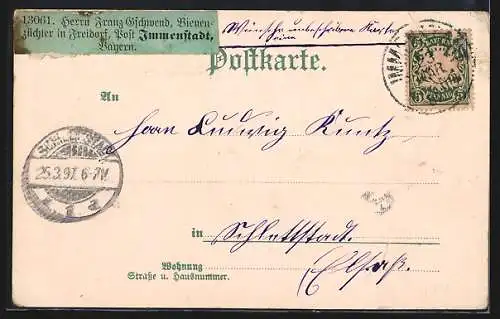 13061. Herrn Franz Gschwend, Bienen-
züchter in Freidorf, Post Immenstadt,
Bayern.
Wünsche unbeschriebene Karte
Postkarte.
An
Herrn Ludwig Kuntz
25.3.97. 6-7N
in
Schlettstadt.
Elsaß.
Wohnung
Straße u. Hausnummer.